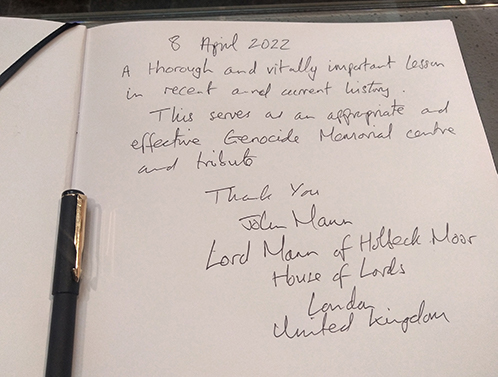 8 April 2022
A thorough and vitally important lesson
in recent and current history.
This serves as an appropriate and
effective Genocide Memorial centre
and tribute
Thank You
John Mann
Lord Mann of Holbeck Moor
House of Lords
London
United Kingdom